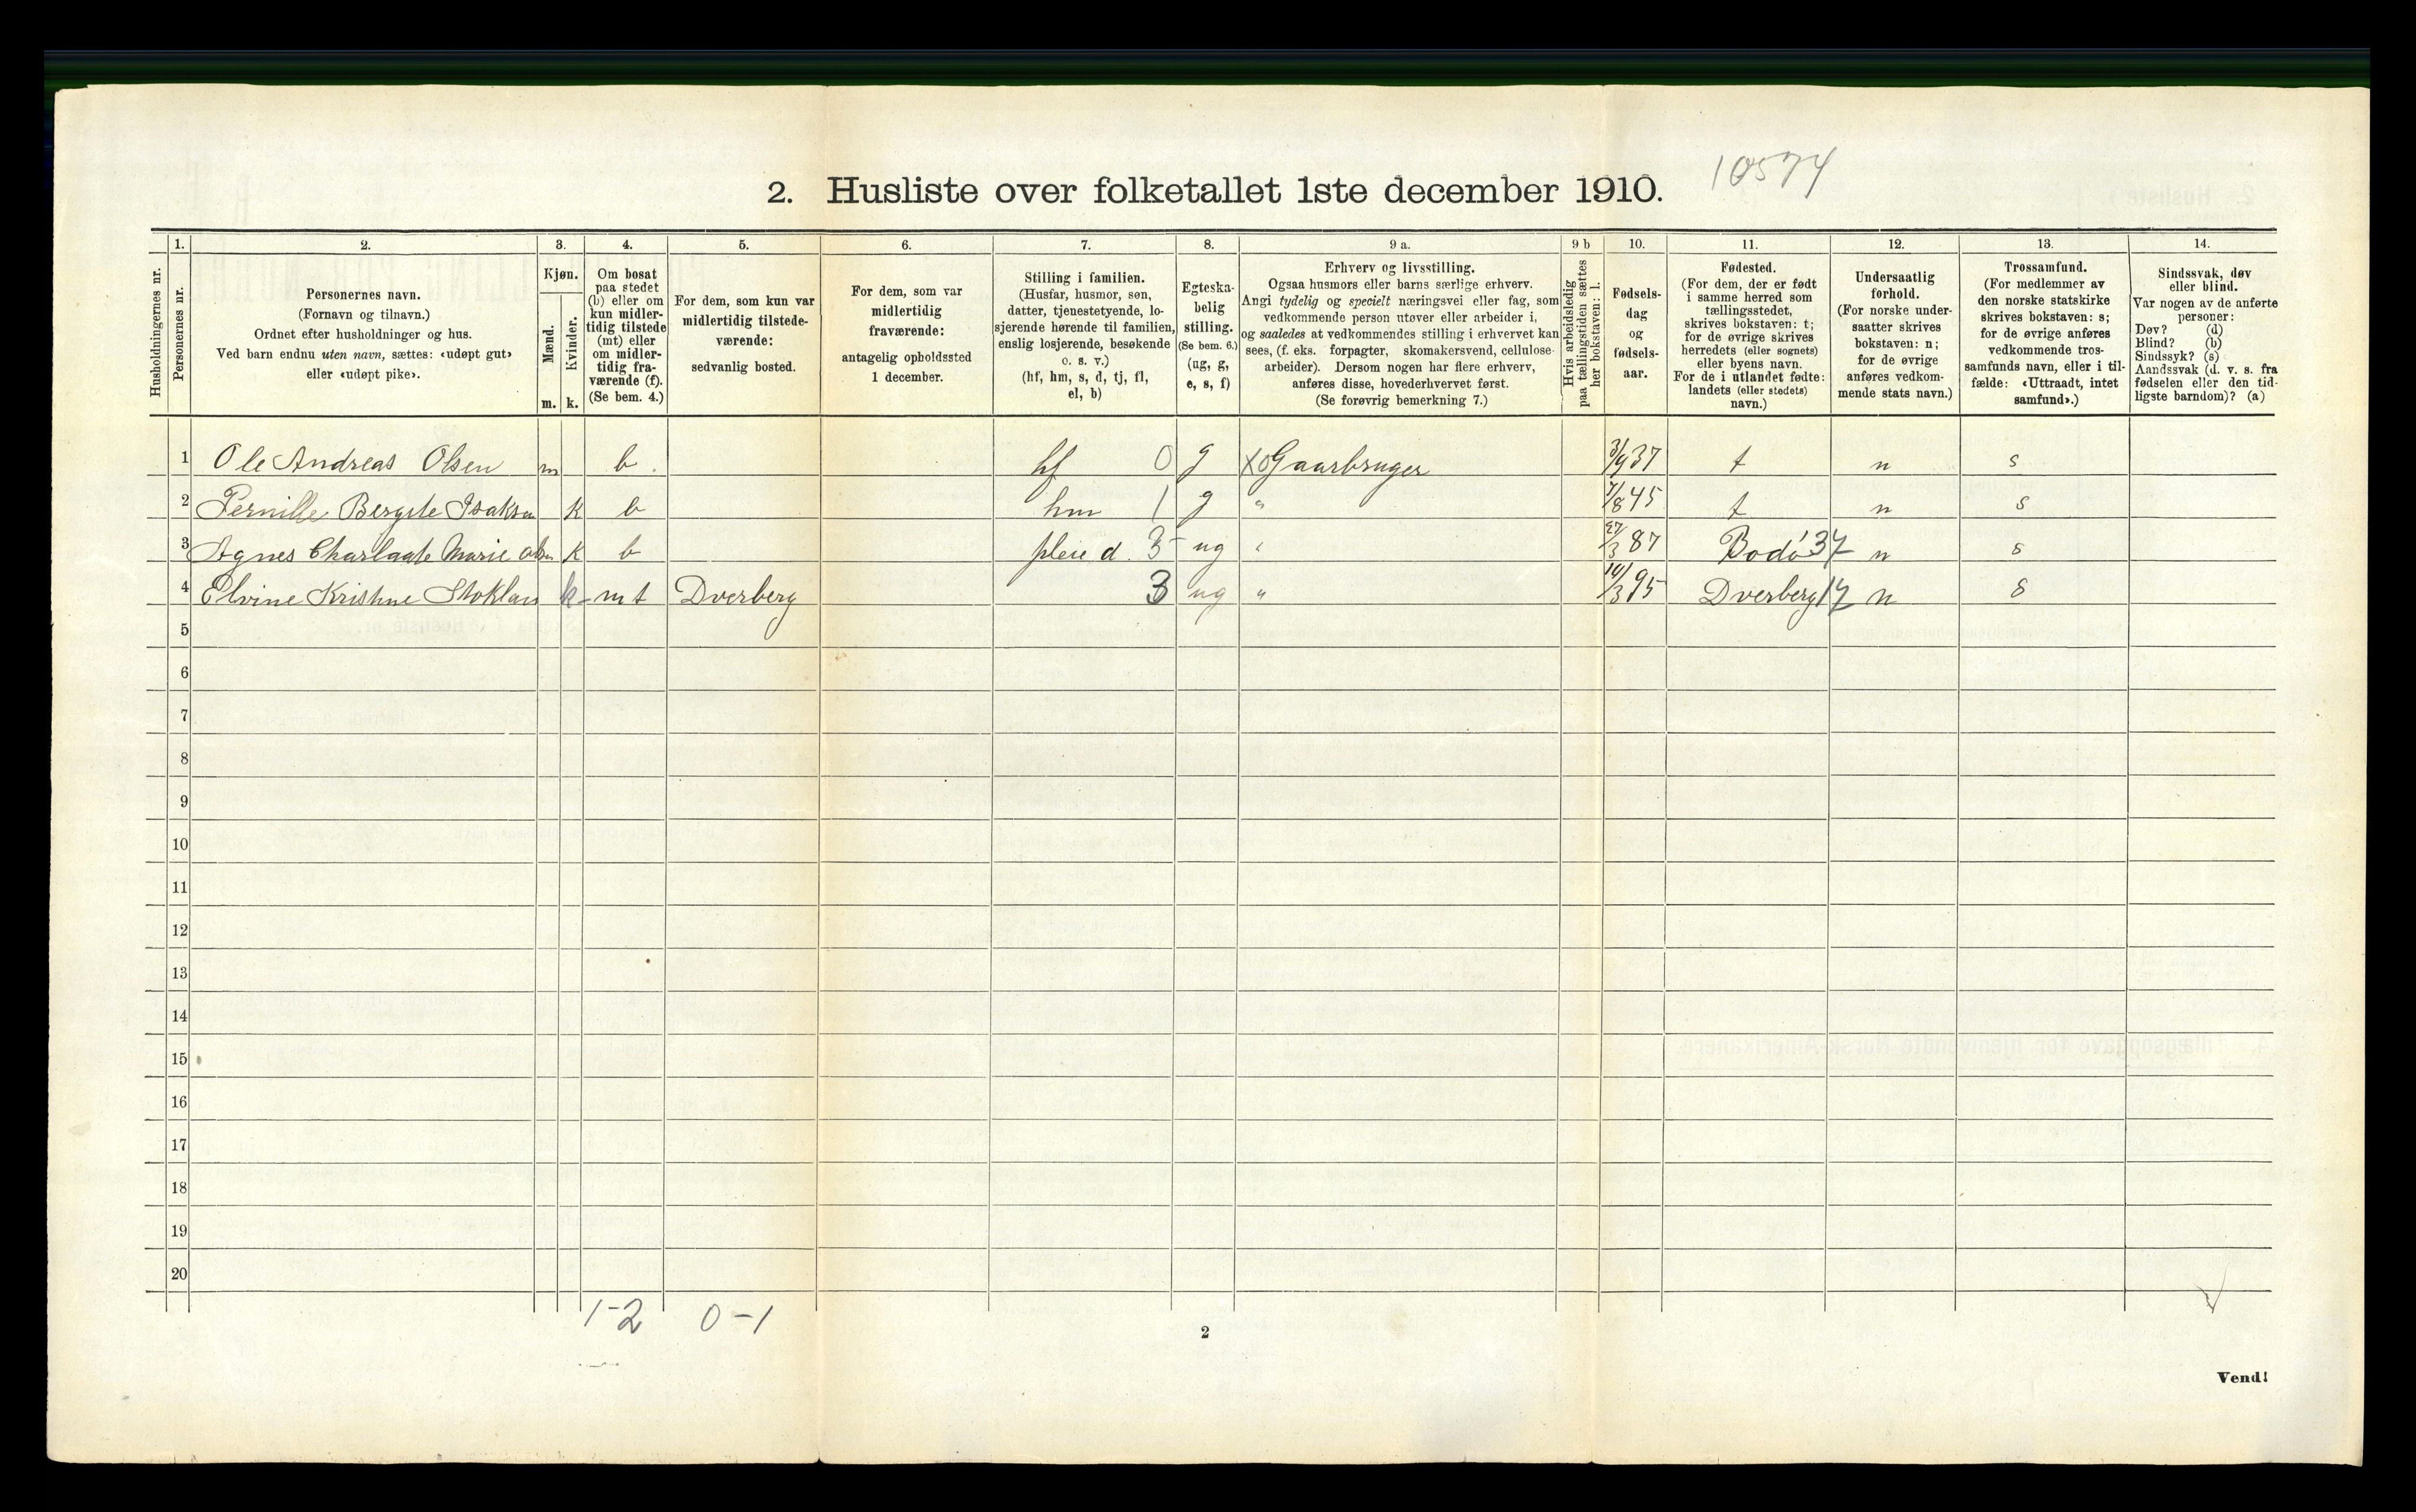 10574
2. Husliste over folketallet 1ste december 1910.
1. 2. 3. 4. 5. 6. 7. 8. 9 a. 9 b 10. 11. 12. 13. 14.
Husholdningernes nr.
Personernes nr.
Personernes navn.
(Fornavn og tilnavn.)
Ordnet efter husholdninger og hus.
Ved barn endnu uten navn, sættes: «udøpt gut»
eller «udøpt pike».
Kjøn.
Mænd.
Kvinder.
m. k.
Om bosat
paa stedet
(b) eller om
kun midler-
tidig tilstede
(mt) eller
om midler-
tidig fra-
værende (f).
(Se bem. 4.)
For dem, som kun var
midlertidig tilstede-
værende:
sedvanlig bosted.
For dem, som var
midlertidig
fraværende:
antagelig opholdssted
1 december.
Stilling i familien.
(Husfar, husmor, søn,
datter, tjenestetyende, lo-
sjerende hørende til familien,
enslig losjerende, besøkende
o. s. v.)
(hf, hm, s, d, tj, fl,
el, b)
Egteska-
belig
stilling.
(Se bem. 6.)
(ug, g,
e, s, f)
Erhverv og livsstilling.
Ogsaa husmors eller barns særlige erhverv.
Angi tydelig og specielt næringsvei eller fag, som
vedkommende person utøver eller arbeider i,
og saaledes at vedkommendes stilling i erhvervet kan
sees, (f. eks. forpagter, skomakersvend, cellulose-
arbeider). Dersom nogen har flere erhverv,
anføres disse, hovederhvervet først.
(Se forøvrig bemerkning 7.)
Hvis arbeidsledig
paa tællingstiden sættes
her bokstaven: l.
Fødsels-
dag
og
fødsels-
aar.
Fødested.
(For dem, der er født
i samme herred som
tællingsstedet,
skrives bokstaven: t;
for de øvrige skrives
herredets (eller sognets)
eller byens navn.
For de i utlandet fødte:
landets (eller stedets)
navn.)
Undersaatlig
forhold.
(For norske under-
saatter skrives
bokstaven: n;
for de øvrige
anføres vedkom-
mende stats navn.)
Trossamfund.
(For medlemmer av
den norske statskirke
skrives bokstaven: s;
for de øvrige anføres
vedkommende tros-
samfunds navn, eller i til-
fælde: «Uttraadt, intet
samfund».)
Sindssvak, døv
eller blind.
Var nogen av de anførte
personer:
Døv? (d)
Blind? (b)
Sindssyk? (s)
Aandssvak (d. v. s. fra
fødselen eller den tid-
ligste barndom)? (a)
1 Ole Andreas Olsen m b. hf 0 g X0 Gaarbruger 3/9 37 t n s
2 Pernille Bergete Isaksen k b hm 1 g " 7/8 45 t n s
3 Agnes Charlaate Marie Olsen k b pleie d. 3 ug " 27/3 87 Bodö 37 n s
4 Elvine Kristine k - mt Dverberg 3 ug " 14/3 95 Dverberg 17 n s
5
6
7
8
9
10
11
12
13
14
15
16
17
18
19
20
1-2 0-1
2
Vend!